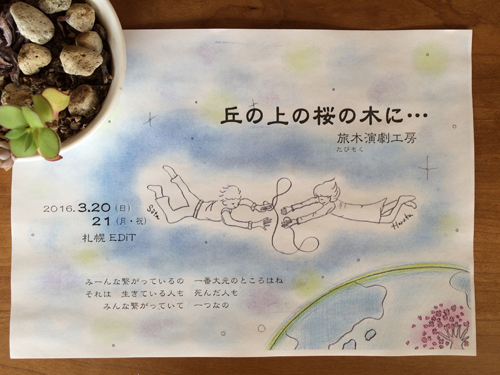 丘の上の桜の木に…
旅木演劇工房
たびもく
2016. 3.20 (日)
21 (月・祝)
札幌 EDiT
Sota
Haruka
みーんな繋がっているの 一番大元のところはね
それは 生きている人も 死んだ人も
みんな繋がっていて 一つなの